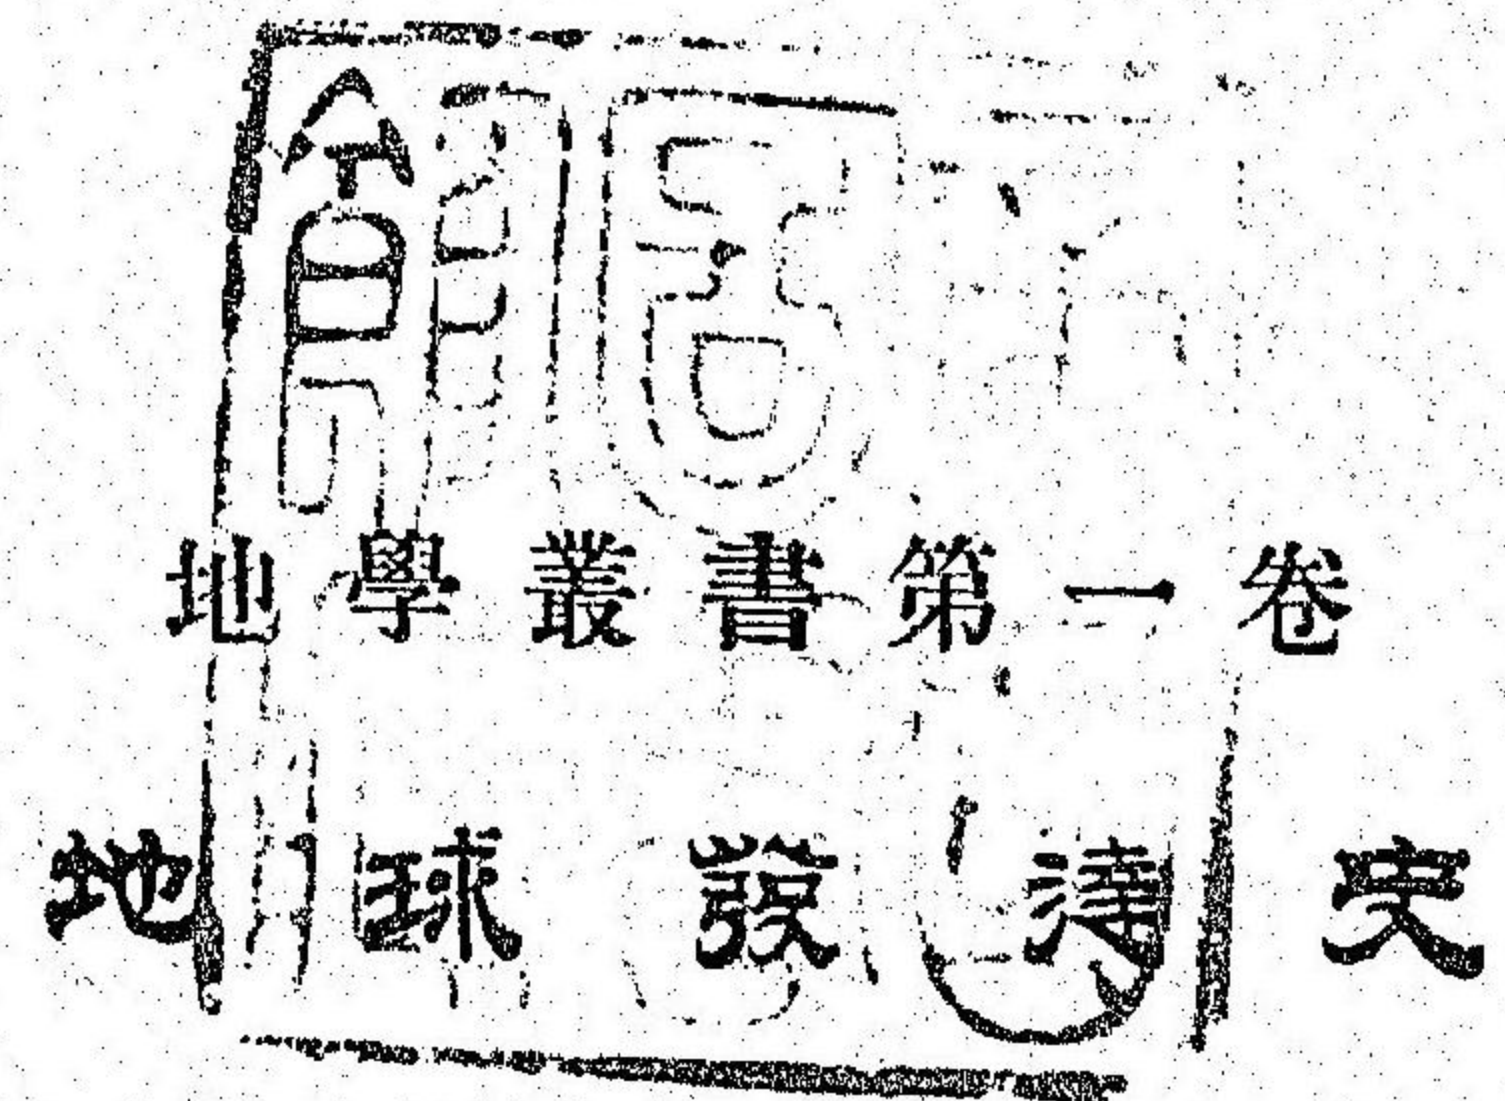 地學叢書第一卷
地球發達史